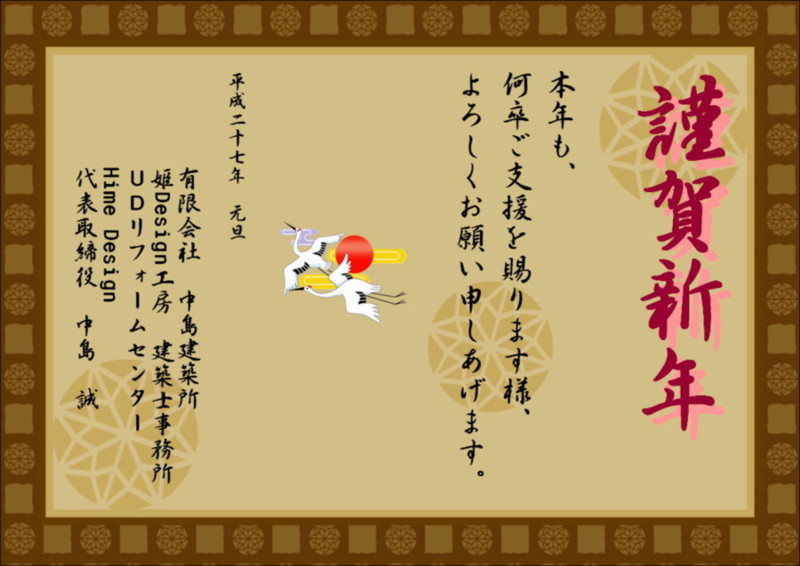 謹賀新年
本年も、
何卒ご支援を賜ります様、
よろしくお願い申しあげます。
平成二十七年　元旦
有限会社　中島建築所
姫Design工房　建築士事務所
UDリフォームセンター
Hime Design
代表取締役　中島　誠